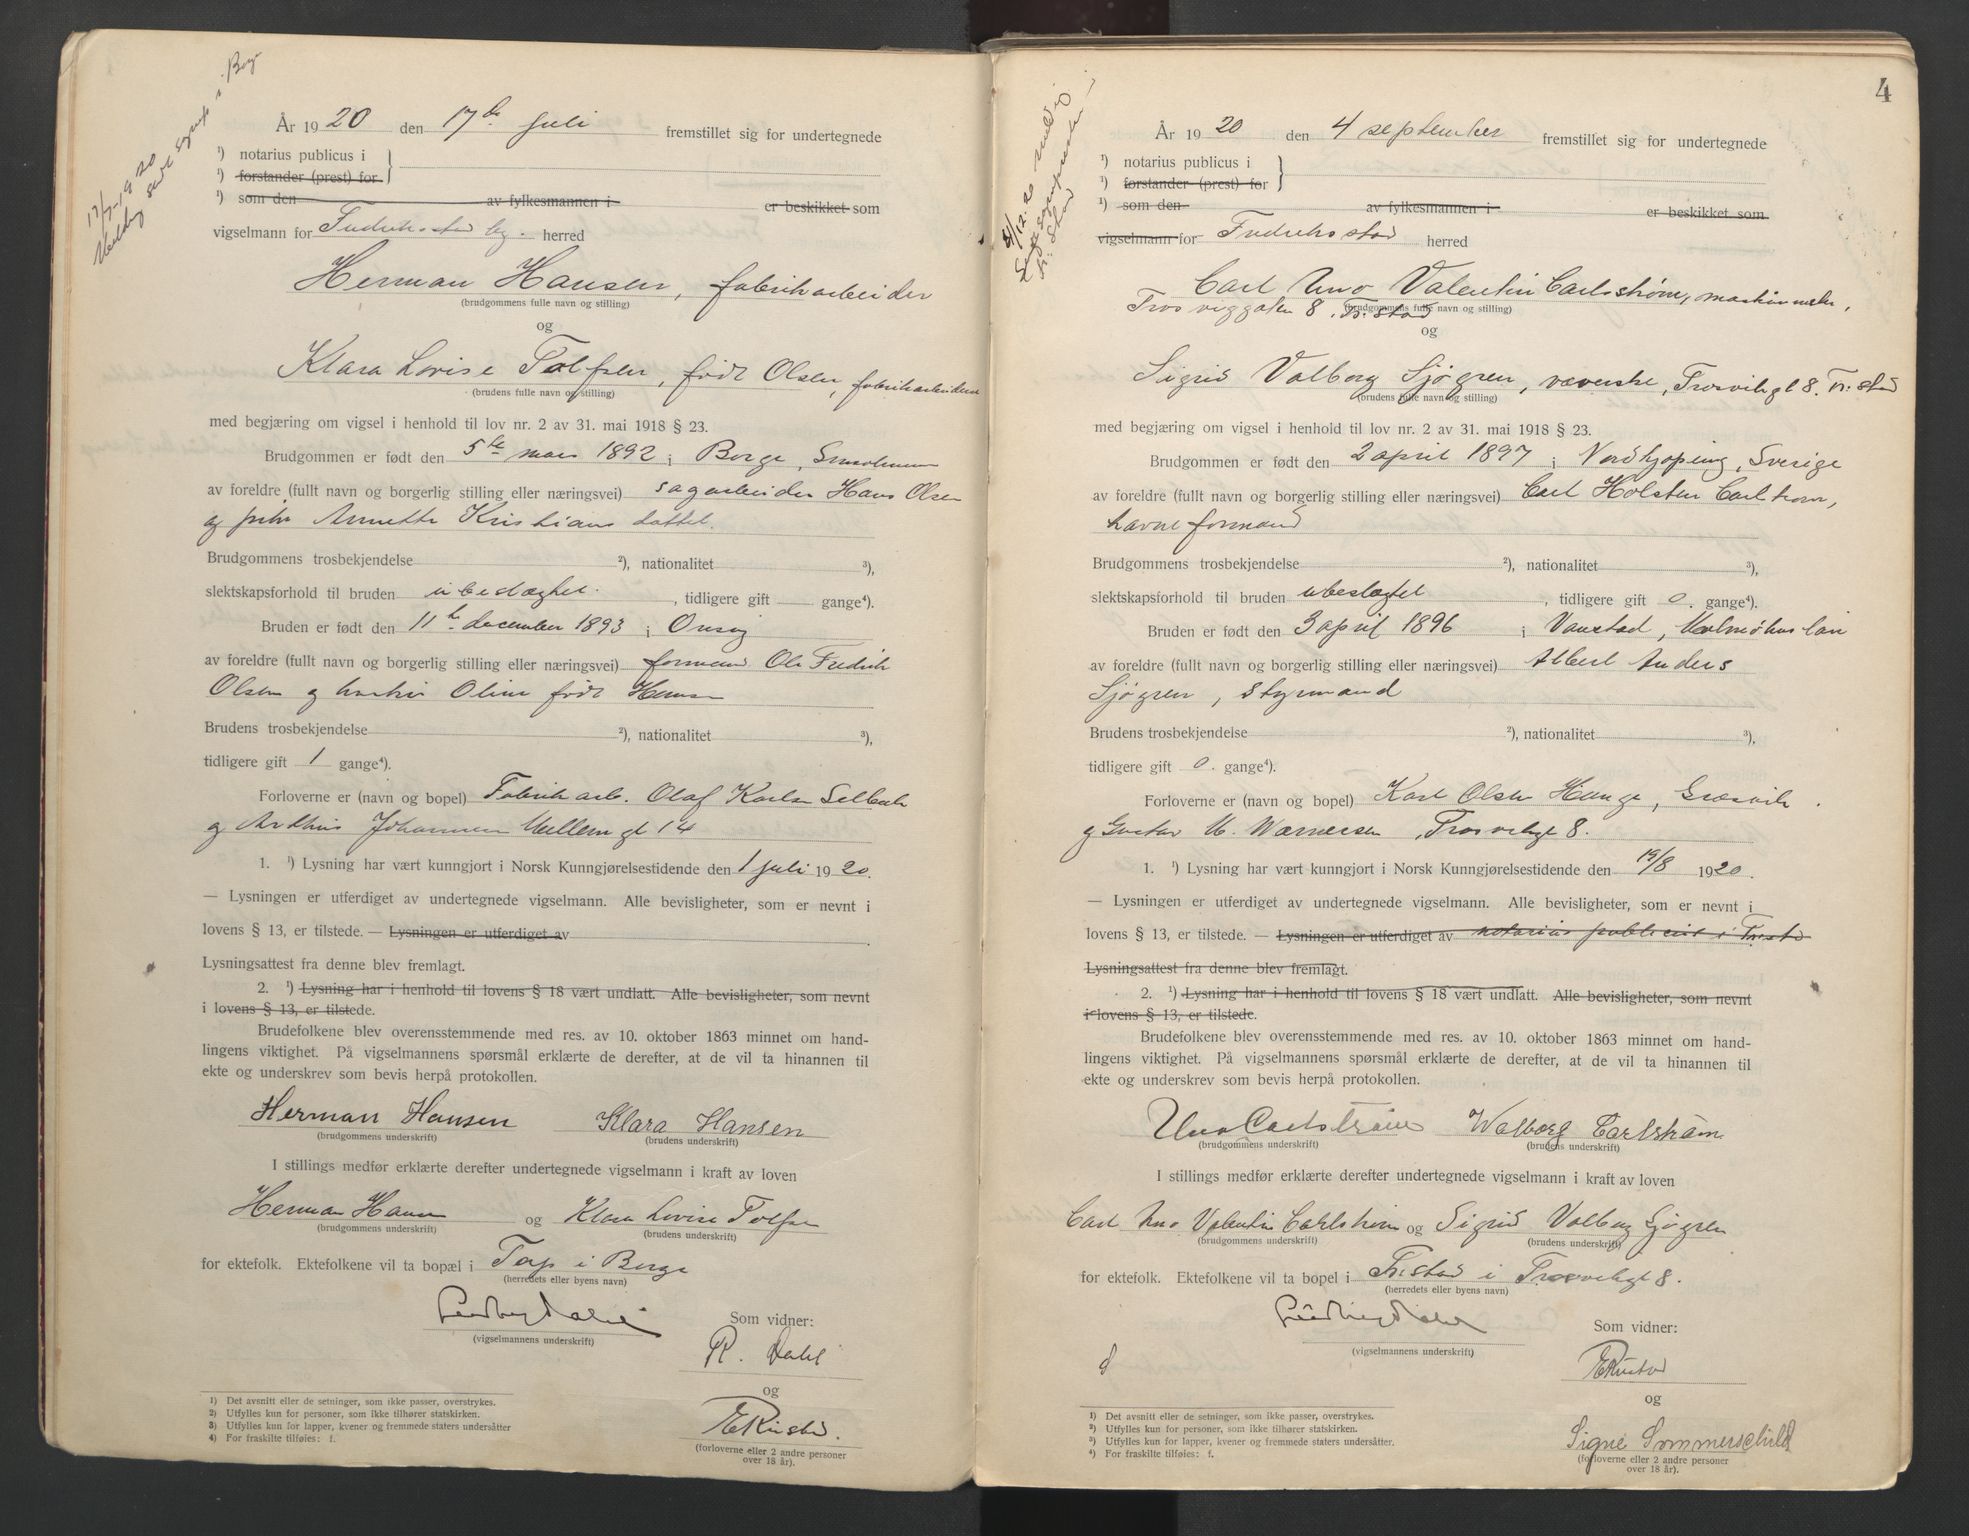 17/7-1920
Melding sendt sogneprest i Borge
År 1920 den 17de juli fremstillet sig for undertegnede
¹) notarius publicus i }
¹) forstander (prest) for
¹) som den av fylkesmannen i er beskikket som
vigselmann for Fredrikstad by. herred
Herman Hansen, fabrikarbeider
(brudgommens fulle navn og stilling)
og
Klara Lovise Tolfsen, født Olsen, fabrikarbeiderske
(brudens fulle navn og stilling)
med begjæring om vigsel i henhold til lov nr. 2 av 31. mai 1918 § 23.
Brudgommen er født den 5te mars 1892 i Borge, Smaalenene
av foreldre (fullt navn og borgerlig stilling eller næringsvei) sagarbeider Hans Olsen
og Annette Kristiansdatter.
Brudgommens trosbekjendelse ²), nationalitet ³),
slektskapsforhold til bruden ubeslægtet. , tidligere gift gange⁴).
Bruden er født den 11te december 1893 i Onsøy
av foreldre (fullt navn og borgerlig stilling eller næringsvei) formand Ole Fredrik
Olsen og hustru Oline født Hansen
Brudens trosbekjendelse ²), nationalitet ³),
tidligere gift 1 gange⁴).
Forloverne er (navn og bopel) Fabrikarb. Olaf Karlsen Selbak
og Arthur Johannesen Mellemgt 14
1. ¹) Lysning har vært kunngjort i Norsk Kunngjørelsestidende den 1 juli 1920.
— Lysningen er utferdiget av undertegnede vigselmann. Alle bevisligheter, som er nevnt i
lovens § 13, er tilstede. — Lysningen er utferdiget av .
Lysningsattest fra denne blev fremlagt.
2. ¹) Lysning har i henhold til lovens § 18 vært undlatt. Alle bevisligheter, som nevnt
i lovens § 13, er tilstede.
Brudefolkene blev overensstemmende med res. av 10. oktober 1863 minnet om hand-
lingens viktighet. På vigselmannens spørsmål erklærte de derefter, at de vil ta hinannen til
ekte og underskrev som bevis herpå protokollen.
Herman Hansen Klara Hansen
(brudgommens underskrift) (brudens underskrift)
I stillings medfør erklærte derefter undertegnede vigselmann i kraft av loven
Herman Hansen og Klara Lovise Tolfsen
(brudgommens underskrift) (brudens underskrift)
for ektefolk. Ektefolkene vil ta bopæl i Torp i Borge
(herredets eller byens navn)
(vigselmannens underskrift)
Som vidner:
R. Dahl
og
(forloverne eller 2 andre personer
over 18 år).
1) Det avsnitt eller de setninger, som ikke passer, overstrykes.
2) Utfylles kun for personer, som ikke tilhører statskirken.
3) Utfylles kun for lapper, kvener og fremmede staters undersåtter
4) For fraskilte tilføies: f.
4
Fr. Stad
År 1920 den 4 september fremstillet sig for undertegnede
¹) notarius publicus i }
¹) forstander (prest) for
¹) som den av fylkesmannen i er beskikket som
vigselmann for Fredrikstad herred
Carl Uno Valentin Carlström, maskinmester,
Trosviggaten 8, Fr.stad
(brudgommens fulle navn og stilling)
og
Sigrid Valborg Sjögren, væverske, Trosvikgt 8. Fr.stad
(brudens fulle navn og stilling)
med begjæring om vigsel i henhold til lov nr. 2 av 31. mai 1918 § 23.
Brudgommen er født den 2 april 1897 i Nordkjøping, Sverige
av foreldre (fullt navn og borgerlig stilling eller næringsvei) Carl Holsten Carlstrøm,
havneformand
Brudgommens trosbekjendelse ²), nationalitet ³),
slektskapsforhold til bruden ubeslegtet , tidligere gift 0. gange⁴).
Bruden er født den 3 april 1896 i Vanstad, Malmöhus län
av foreldre (fullt navn og borgerlig stilling eller næringsvei) Albert Anders
Sjögren, styrmand
Brudens trosbekjendelse ²), nationalitet ³),
tidligere gift 0. gange⁴).
Forloverne er (navn og bopel) Karl Olsen Hauge, Græsvik.
og Gustav M. Warnersen, Trosvikgt 8.
1. ¹) Lysning har vært kunngjort i Norsk Kunngjørelsestidende den 19/8 1920.
— Lysningen er utferdiget av undertegnede vigselmann. Alle bevisligheter, som er nevnt i
lovens § 13, er tilstede. — Lysningen er utferdiget av notarius publicus i Fr.stad
Lysningsattest fra denne blev fremlagt.
2. ¹) Lysning har i henhold til lovens § 18 vært undlatt. Alle bevisligheter, som nevnt
i lovens § 13, er tilstede.
Brudefolkene blev overensstemmende med res. av 10. oktober 1863 minnet om hand-
lingens viktighet. På vigselmannens spørsmål erklærte de derefter, at de vil ta hinannen til
ekte og underskrev som bevis herpå protokollen.
Uno Carlström Walborg Carlström
(brudgommens underskrift) (brudens underskrift)
I stillings medfør erklærte derefter undertegnede vigselmann i kraft av loven
Carl Uno Valentin Carlström og Sigrid Valborg Sjögren
(brudgommens underskrift) (brudens underskrift)
for ektefolk. Ektefolkene vil ta bopel i Fr.stad i Trosvikgt 8.
(herredets eller byens navn)
(vigselmannens underskrift)
Som vidner:
og
Signe Sommerschild
(forloverne eller 2 andre personer
over 18 år).
1) Det avsnitt eller de setninger, som ikke passer, overstrykes.
2) Utfylles kun for personer, som ikke tilhører statskirken.
3) Utfylles kun for lapper, kvener og fremmede staters undersåtter.
4) For fraskilte tilføies: f.